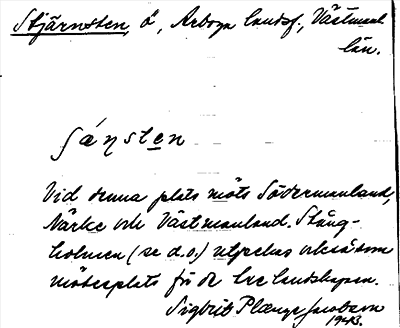 Stjärnsten, ö, Arboga landsf., Västmanl.
län.
ʃä́ηsten
Vid denna plats möts Södermanland,
Närke och Västmanland. Stång-
holmen (se d.o.) utpekas också som
mötesplats för de tre landskapen.
Sigbrit Plænge Jacobson
1943.